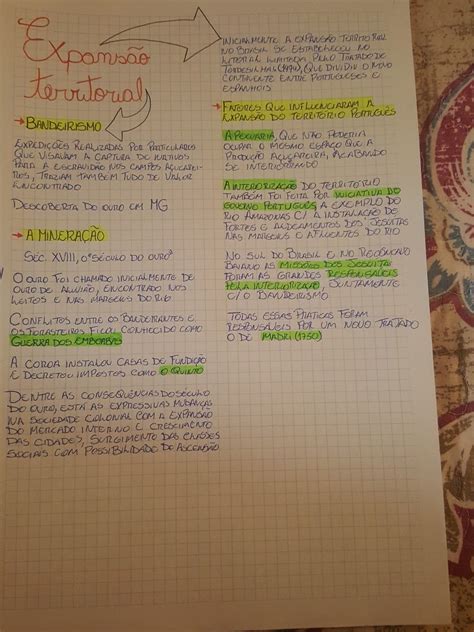 Expansão
territorial
→ BANDEIRISMO
EXPEDIÇÕES REALIZADAS POR PARTICULARES
QUE VISAVAM A CAPTURA DE NATIVOS
PARA A ESCRAVIDÃO NOS CAMPOS AÇUCAREI-
ROS, TRAZIAM TAMBÉM TUDO DE VALOR
ENCONTRADO
DESCOBERTA DO OURO EM MG
→ A MINERAÇÃO
SÉC. XVIII, O "SÉCULO DO OURO"
O OURO FOI CHAMADO INICIALMENTE DE
OURO DE ALUVIÃO, ENCONTRADO NOS
LEITOS E NAS MARGENS DO RIO
CONFLITOS ENTRE OS BANDEIRANTES E
OS FORASTEIROS FICOU CONHECIDO COMO
GUERRA DOS EMBOABAS
A COROA INSTALOU CASAS DE FUNDIÇÃO
E DECRETOU IMPOSTOS COMO O QUINTO
DENTRE AS CONSEQUÊNCIAS DO SÉCULO
DO OURO, ESTÁ AS EXPRESSIVAS MUDANÇAS
NA SOCIEDADE COLONIAL COM A EXPANSÃO
DO MERCADO INTERNO E CRESCIMENTO
DAS CIDADES, SURGIMENTO DAS
SOCIAIS COM POSSIBILIDADE DE ASCENSÃO
INICIALMENTE A EXPANSÃO TERRITORIAL
NO BRASIL SE ESTABELECEU NO
LITORAL LIMITADA PELO TRATADO DE
TORDESILHAS (1494), QUE DIVIDIU O NOVO
CONTINENTE ENTRE PORTUGUESES E
ESPANHÓIS
→ FATORES QUE INFLUENCIARAM A
EXPANSÃO DO TERRITÓRIO PORTUGUÊS
A PECUÁRIA, QUE NÃO PODERIA
OCUPAR O MESMO ESPAÇO QUE A
PRODUÇÃO AÇUCAREIRA, ACABANDO
SE INTERIORIZANDO
A INTERIORIZAÇÃO DO TERRITÓRIO
TAMBÉM FOI FEITA POR INICIATIVA DO
GOVERNO PORTUGUÊS, A EXEMPLO DO
RIO AMAZONAS C/ A INSTALAÇÃO DE
FORTES E ALDEAMENTOS DOS JESUÍTAS
NAS MARGENS E AFLUENTES DO RIO
NO SUL DO BRASIL E NO RECÔNCAVO
BAIANO AS MISSÕES DOS JESUÍTAS
FORAM AS GRANDES RESPONSÁVEIS
PELA INTERIORIZAÇÃO, JUNTAMENTE
C/ O BANDEIRISMO
TODAS ESSAS PRATICAS FORAM
RESPONSÁVEIS POR UM NOVO TRATADO
O DE MADRI (1750)